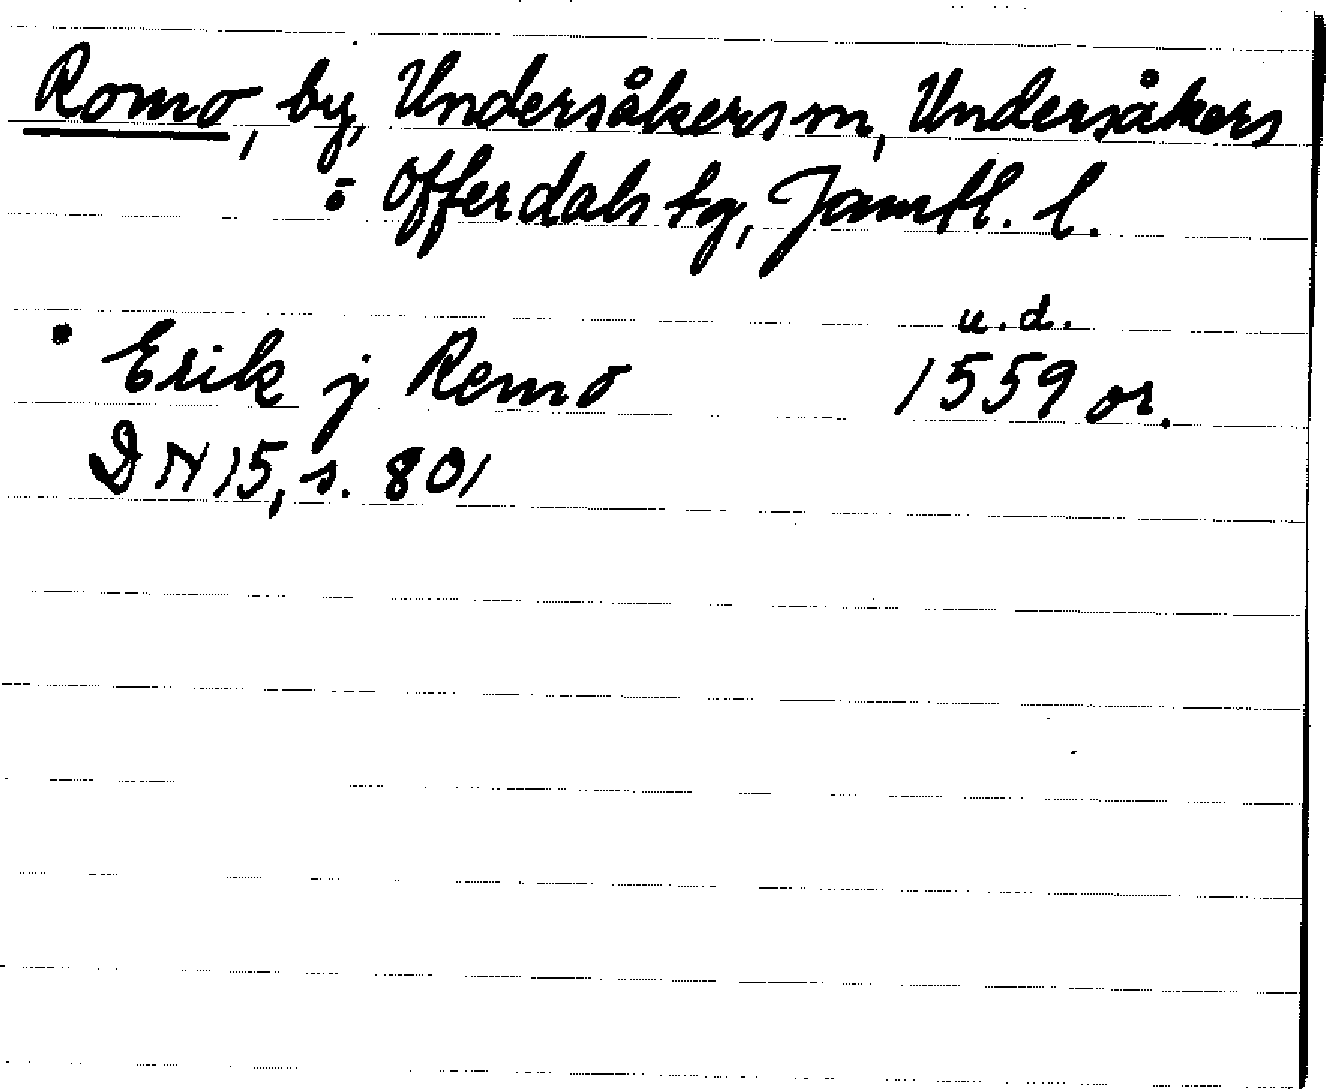 Romo, by, Undersåkers sn, Undersåkers
o Offerdals tg, Jämtl. l.
u.d.
• Erik j Remo 1559 or.
DN 15, s. 801